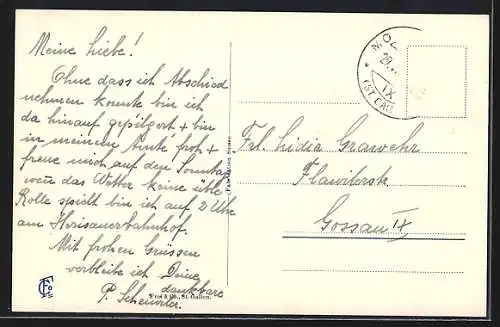 Meine Liebe!
Ohne dass ich Abschied
nehmen konnte bin ich
da hinauf gepilgert + bin
in meinem froh +
freue mich auf den Sonntag
wenn das Wetter keine üble
Rolle spielt bin ich auf 2 Uhr
am Herisauerbahnhof.
Mit frohen Grüssen
verbleibe ich Deine
dankbare
P. Scheiwiler.
Frl. Lidia Grawehr
Flawilerstr
Gossau
MO
29.
IX
(ST. GAL
Frei & Co., St. Gallen.